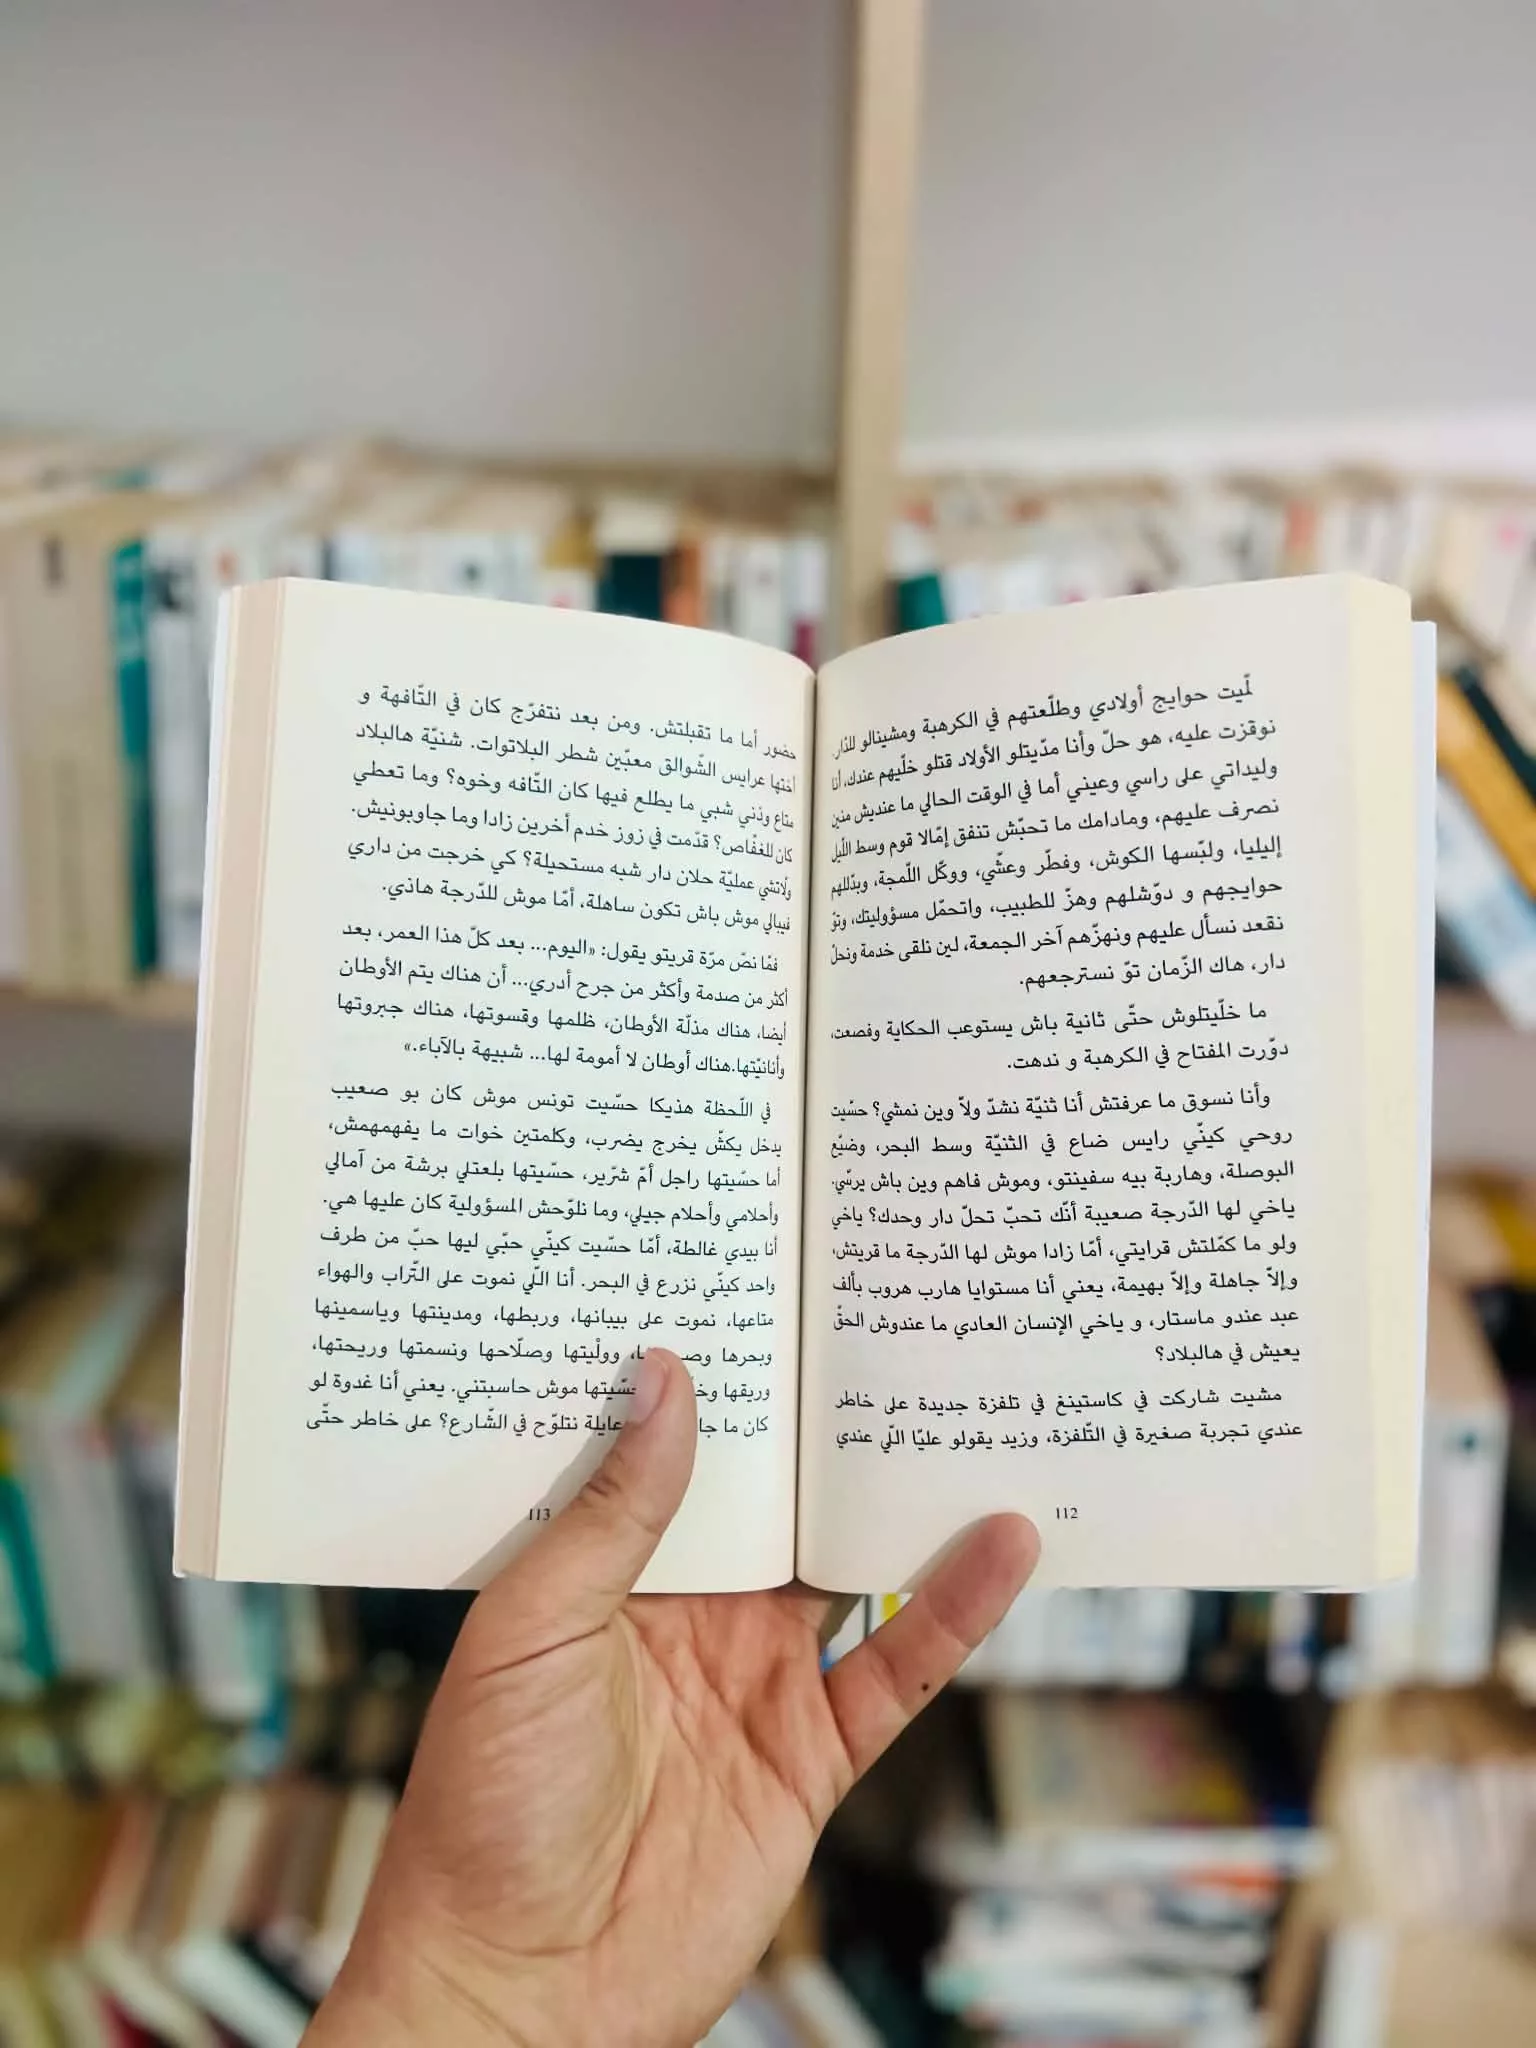 لمّيت حوايج أولادي وطلّعتهم في الكرهبة ومشينالو للدّار.
نوقزت عليه، هو حلّ وأنا مدّيتلو الأولاد قتلو خلّيهم عندك، أنا
وليداتي على راسي وعيني أما في الوقت الحالي ما عنديش منين
نصرف عليهم، ومادامك ما تحبّش تنفق إمّالا قوم وسط اللّيل
إليليا، ولبّسها الكوش، وفطّر وعشّي، ووكّل اللّمجة، وبدّللهم
حوايجهم و دوّشلهم وهزّ للطبيب، واتحمّل مسؤوليتك، وتوّ
نقعد نسأل عليهم ونهزّهم آخر الجمعة، لين نلقى خدمة ونحلّ
دار، هاك الزّمان توّ نسترجعهم.
ما خلّيتلوش حتّى ثانية باش يستوعب الحكاية وفصعت،
دوّرت المفتاح في الكرهبة و ندهت.
وأنا نسوق ما عرفتش أنا ثنيّة نشدّ ولاّ وين نمشي؟ حسّيت
روحي كينّي رايس ضاع في الثنيّة وسط البحر، وضيّع
البوصلة، وهاربة بيه سفينتو، وموش فاهم وين باش يرسّي.
ياخي لها الدّرجة صعيبة أنّك تحبّ تحلّ دار وحدك؟ ياخي
ولو ما كمّلتش قرايتي، أمّا زادا موش لها الدّرجة ما قريتش،
وإلاّ جاهلة وإلاّ بهيمة، يعني أنا مستوايا هارب هروب بألف
عبد عندو ماستار، و ياخي الإنسان العادي ما عندوش الحقّ
يعيش في هالبلاد؟
مشيت شاركت في كاستينغ في تلفزة جديدة على خاطر
عندي تجربة صغيرة في التّلفزة، وزيد يقولو عليّا اللّي عندي
112
حضور أما ما تقبلتش. ومن بعد نتفرّج كان في التّافهة و
أختها عرايس الشّوالق معبّين شطر البلاتوات. شنيّة هالبلاد
متاع وذني شبي ما يطلع فيها كان التّافه وخوه؟ وما تعطي
كان للغفّاص؟ قدّمت في زوز خدم أخرين زادا وما جاوبونيش.
ولّاتشي عمليّة حلان دار شبه مستحيلة؟ كي خرجت من داري
فيبالي موش باش تكون ساهلة، أمّا موش للدّرجة هاذي.
فمّا نصّ مرّة قريتو يقول: «اليوم... بعد كلّ هذا العمر، بعد
أكثر من صدمة وأكثر من جرح أدري... أن هناك يتم الأوطان
أيضا، هناك مذلّة الأوطان، ظلمها وقسوتها، هناك جبروتها
وأنانيّتها.هناك أوطان لا أمومة لها... شبيهة بالآباء.»
في اللّحظة هذيكا حسّيت تونس موش كان بو صعيب
يدخل يكشّ يخرج يضرب، وكلمتين خوات ما يفهمهمش،
أما حسّيتها راجل أمّ شرّير، حسّيتها بلعتلي برشة من آمالي
وأحلامي وأحلام جيلي، وما نلوّحش المسؤولية كان عليها هي.
أنا بيدي غالطة، أمّا حسّيت كينّي حبّي ليها حبّ من طرف
واحد كينّي نزرع في البحر. أنا اللّي نموت على التّراب والهواء
متاعها، نموت على بيبانها، وربطها، ومدينتها وياسمينها
وبحرها ووليّتها وصلّاحها ونسمتها وريحتها،
وريقها حسّيتها موش حاسبتني. يعني أنا غدوة لو
كان ما عايلة نتلوّح في الشّارع؟ على خاطر حتّى
113